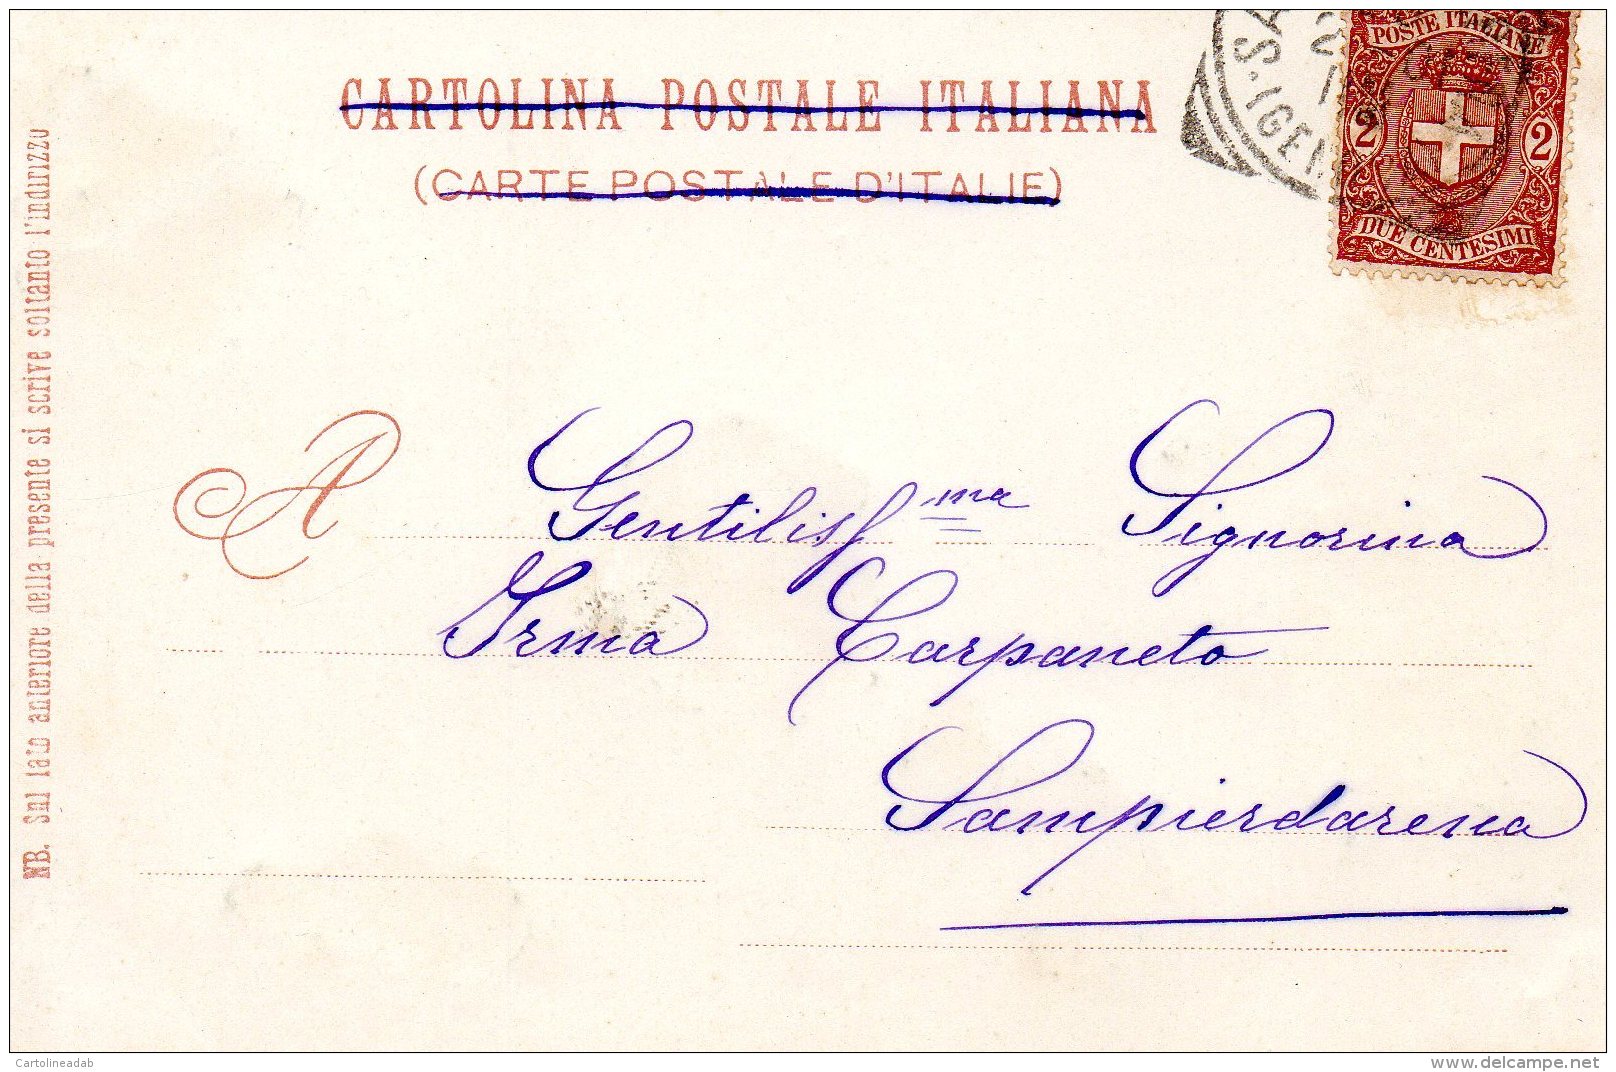 CARTOLINA POSTALE ITALIANA
(CARTE POSTALE D'ITALIE)
POSTE ITALIANE
2 2
DUE CENTESIMI
A Gentiliss.ma Signorina
Irma Carpaneto
Sampierdarena
NB. Sul lato anteriore della presente si scrive soltanto l'indirizzo
Cartolineadab
delcampe.net